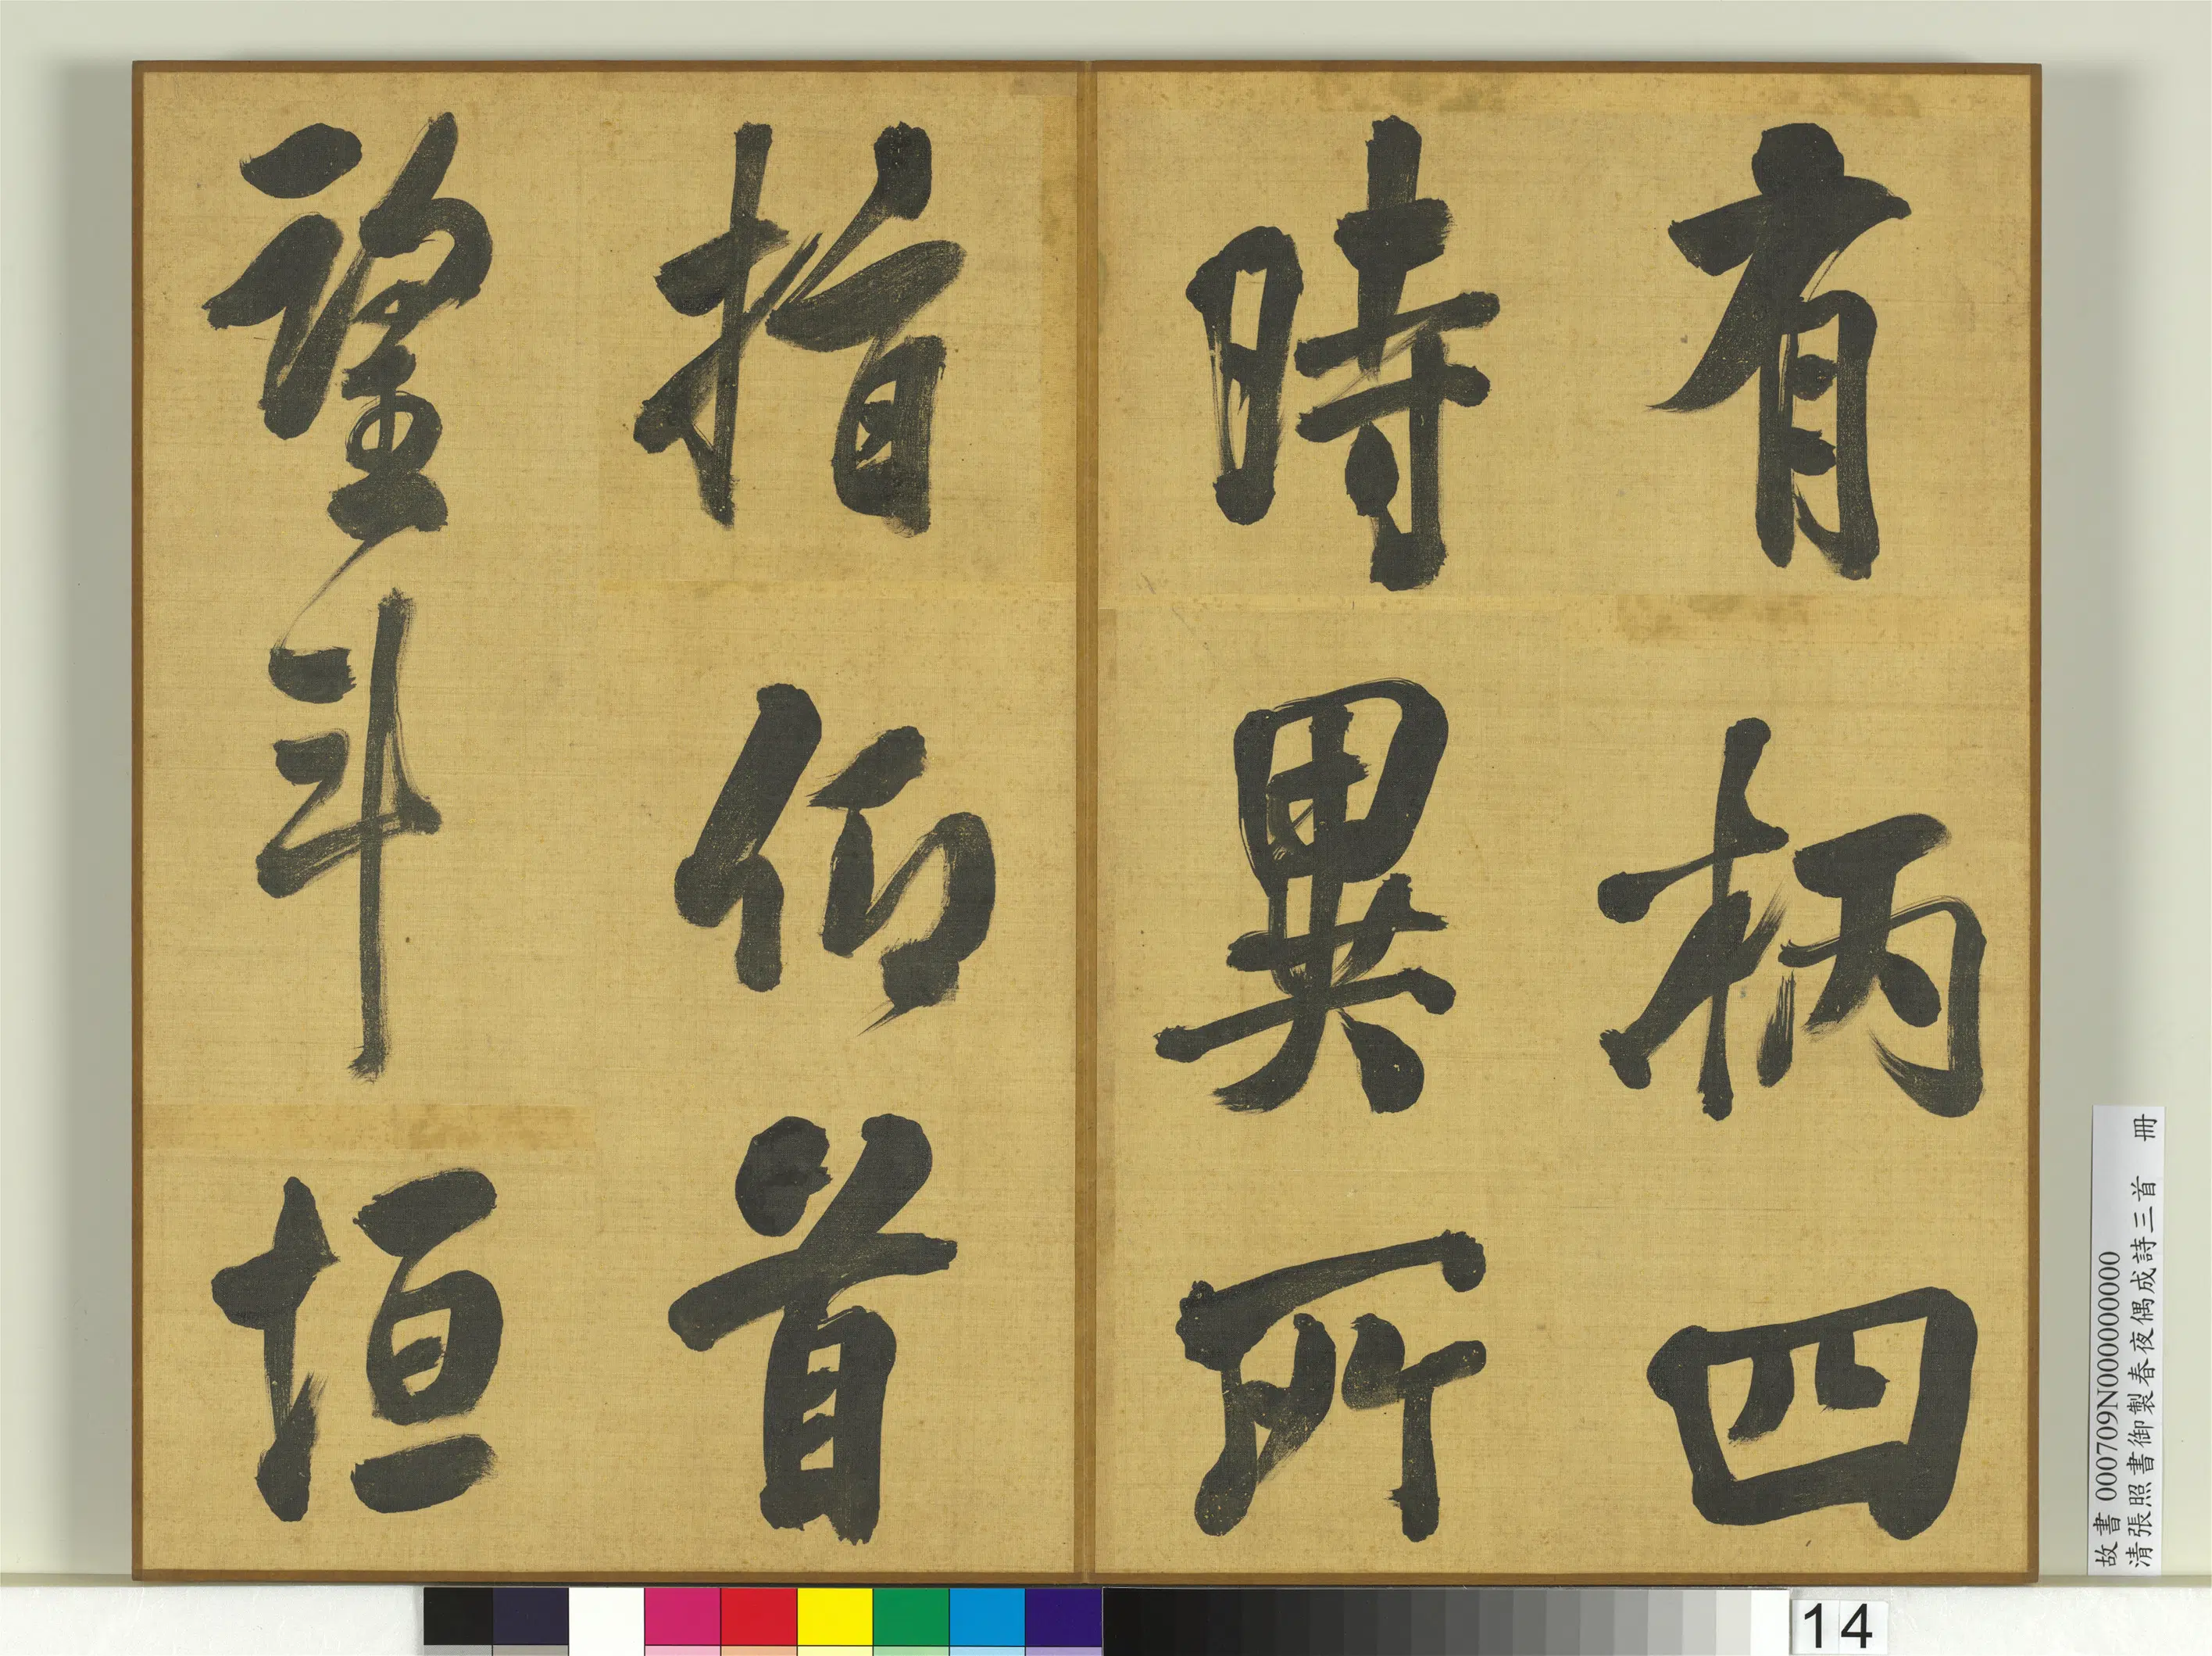 有柄四
時異所
指仰首
望斗垣
故書 000709N000000000
清張照書御製春夜偶成詩三首 冊
14